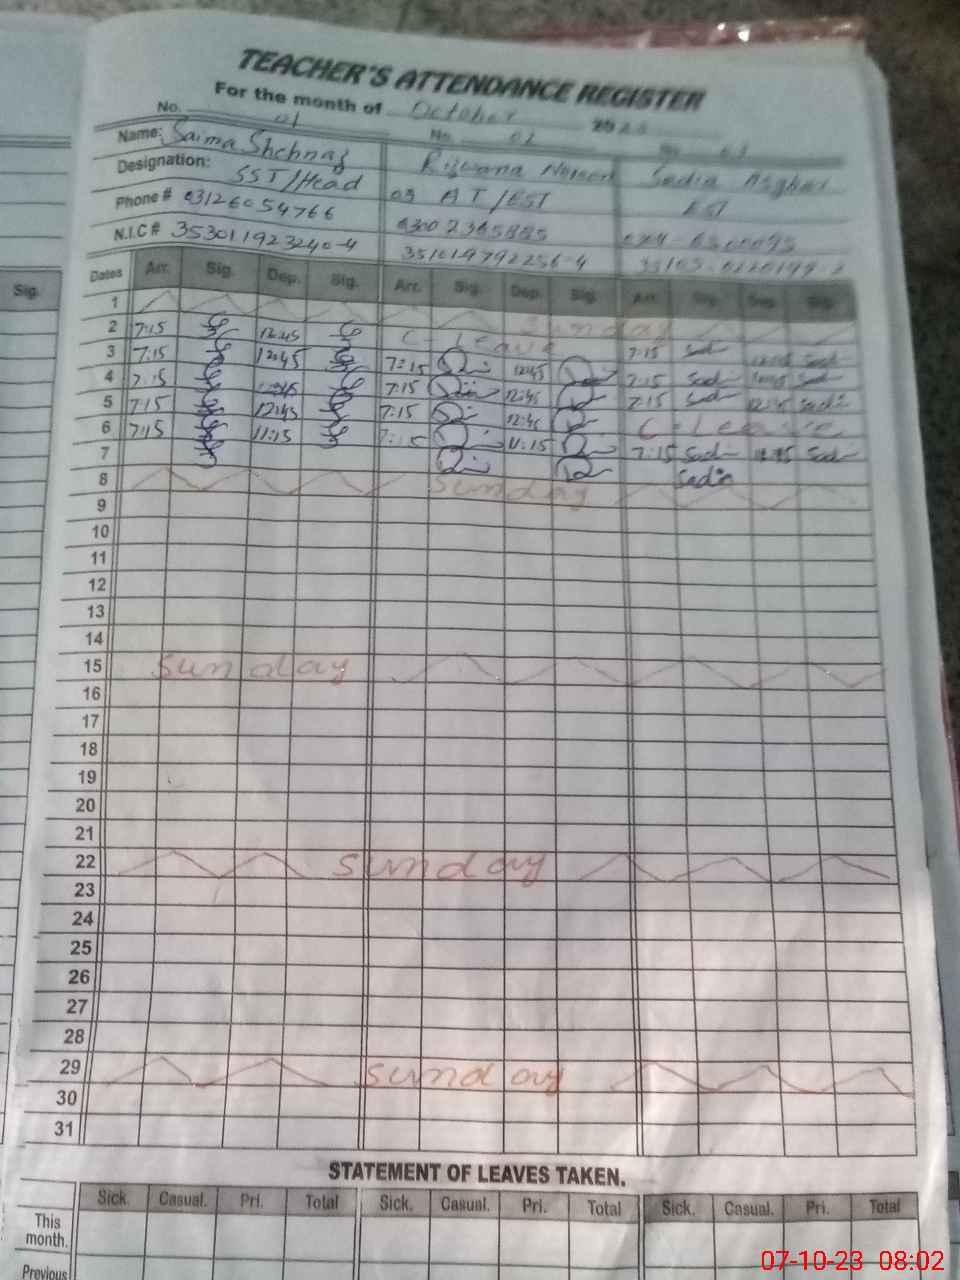 TEACHER'S ATTENDANCE REGISTER
For the month of October 2023
No. 01 No. 02 No. 03
Name: Saima Shehnaz Rizwana
Designation: SST/Head AT/EST EST
Phone # 03126054766
N.I.C # 353011923240-4
Sig. Dates Arr. Sig. Dep. Sig. Arr. Sig. Dep. Sig. Arr. Sig. Dep. Sig.
1 Sunday
2 7:15 12:45 C-Leave 7:15
3 7:15 12:45 7:15 12:45 7:15
4 7:15 7:15 12:45 7:15
5 7:15 12:45 7:15 12:45 C-Leave
6 7:15 11:15 7:15 11:15 7:15
7
8 Sunday
9
10
11
12
13
14
15 Sunday
16
17
18
19
20
21
22 Sunday
23
24
25
26
27
28
29 Sunday
30
31
STATEMENT OF LEAVES TAKEN.
Sick. Casual. Pri. Total Sick. Casual. Pri. Total Sick. Casual. Pri. Total
This month.
Previous
07-10-23 08:02